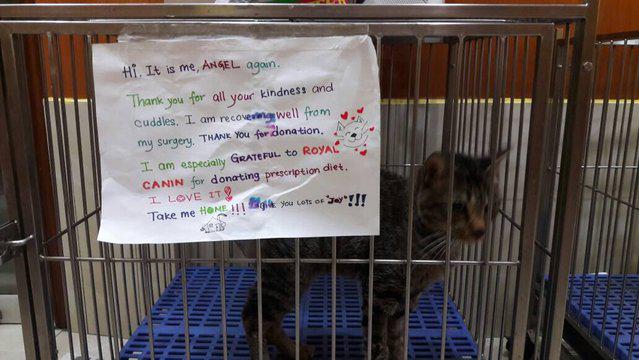 Hi. It is me, ANGEL again.
Thank you for all your kindness and
cuddles. I am recovering well from
my surgery. THANK YOU for donation.
I am especially GRATEFUL to ROYAL
CANIN for donating prescription diet.
I LOVE IT!
Take me HOME!!! give YOU LOTS OF "JOY"!!!